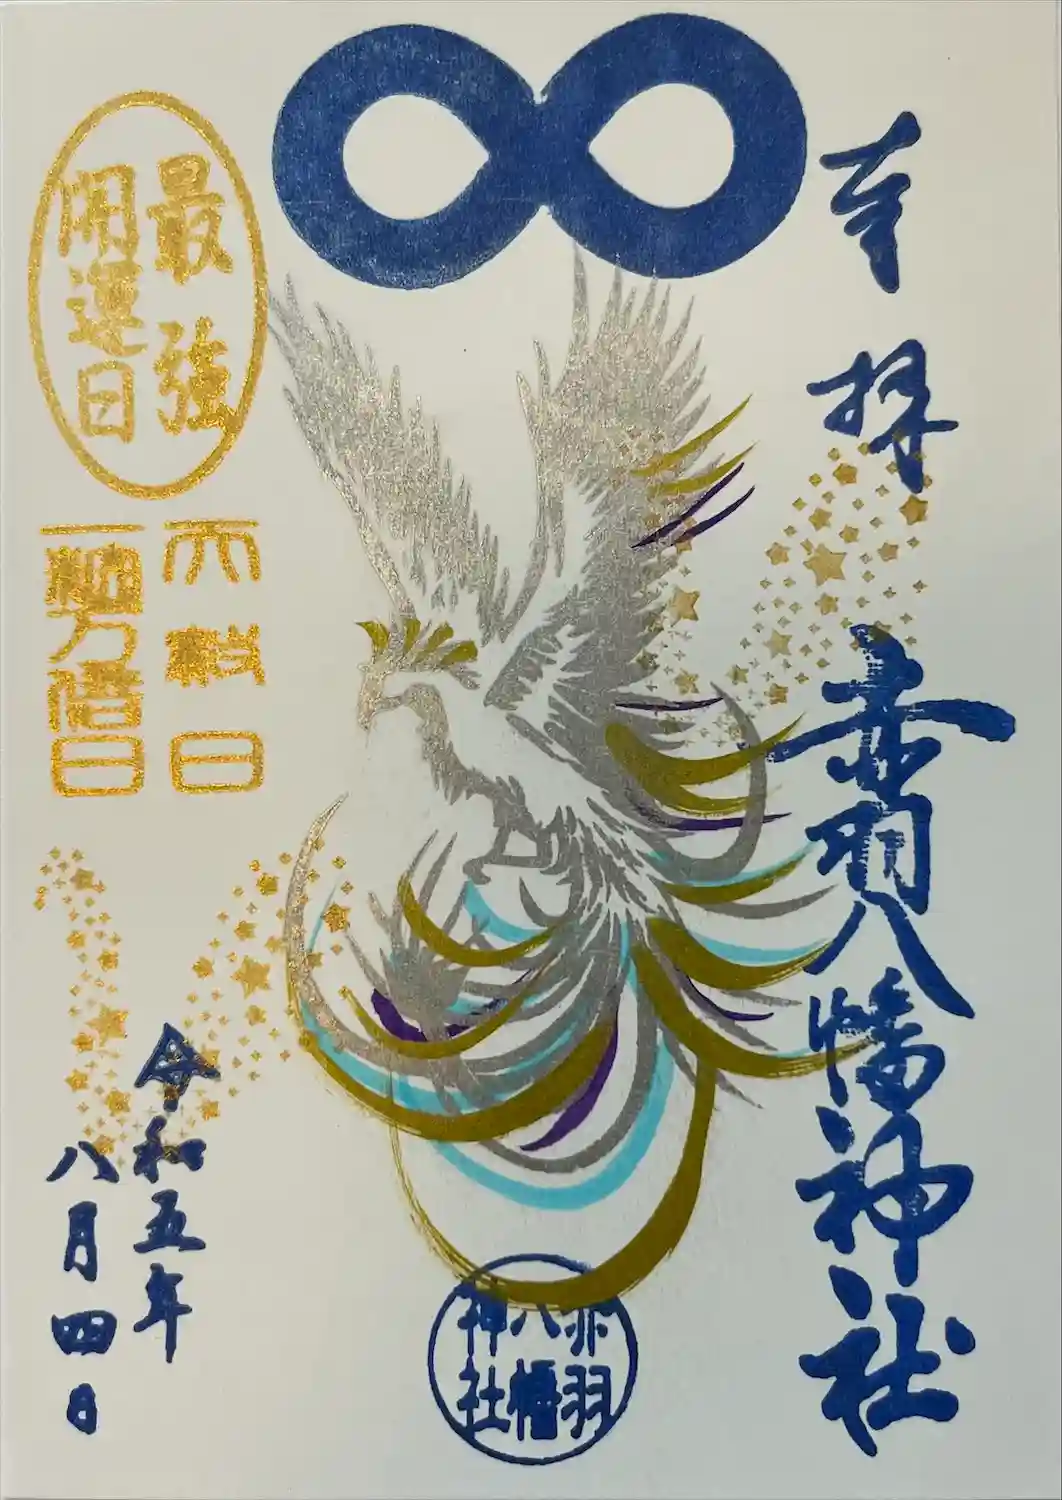 奉拝
赤羽八幡神社
赤羽
八幡
神社
最強
開運日
天赦日
一粒万倍日
令和五年
八月四日